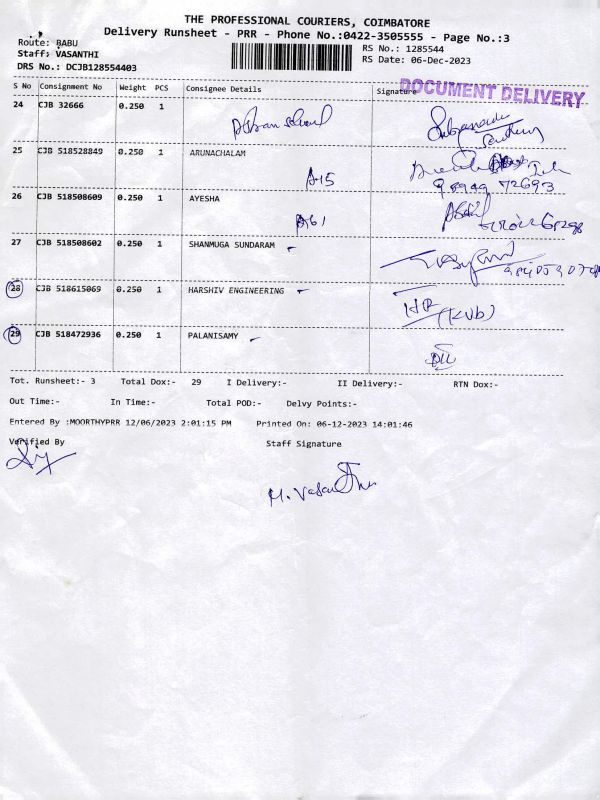 THE PROFESSIONAL COURIERS, COIMBATORE
Delivery Runsheet - PRR - Phone No.:0422-3505555 - Page No.:3
Route: BABU
RS No.: 1285544
Staff: VASANTHI
RS Date: 06-Dec-2023
DRS No.: DCJB128554403
DOCUMENT DELIVERY
S No Consignment No Weight PCS Consignee Details Signature
24 CJB 32666 0.250 1
25 CJB 518528849 0.250 1 ARUNACHALAM
A15
98949 72693
26 CJB 518508609 0.250 1 AYESHA
A61
27 CJB 518508602 0.250 1 SHANMUGA SUNDARAM
28 CJB 518615069 0.250 1 HARSHIV ENGINEERING
HR (KVb)
29 CJB 518472936 0.250 1 PALANISAMY
Tot. Runsheet:- 3 Total Dox:- 29 I Delivery:- II Delivery:- RTN Dox:-
Out Time:- In Time:- Total POD:- Delvy Points:-
Entered By :MOORTHYPRR 12/06/2023 2:01:15 PM Printed On: 06-12-2023 14:01:46
Verified By Staff Signature